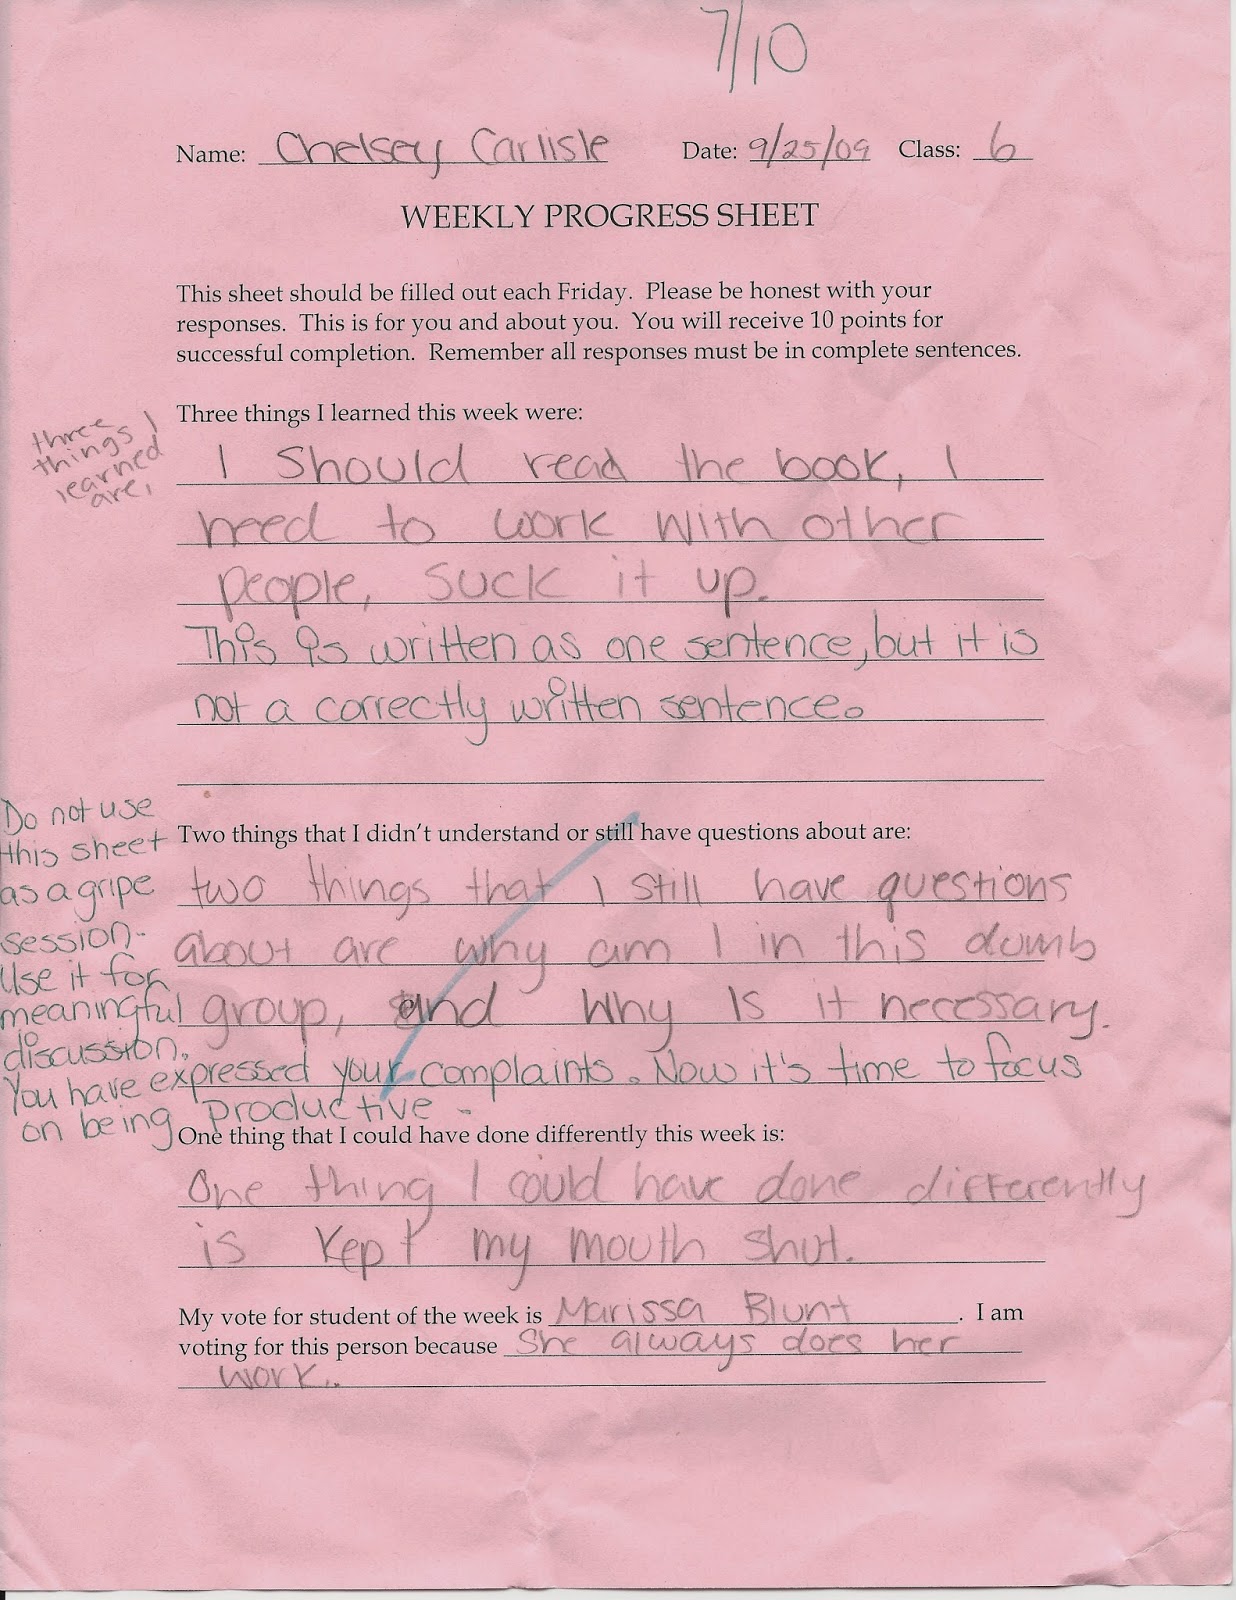 7/10
Name: Chelsey Carlisle Date: 9/25/09 Class: 6
WEEKLY PROGRESS SHEET
This sheet should be filled out each Friday. Please be honest with your
responses. This is for you and about you. You will receive 10 points for
successful completion. Remember all responses must be in complete sentences.
Three things I learned this week were:
three
things I
learned
are,
I should read the book, I
need to work with other
people, suck it up.
This is written as one sentence, but it is
not a correctly written sentence.
Two things that I didn't understand or still have questions about are:
two things that I still have questions
about are why am I in this dumb
group, and why is it necessary.
Do not use
this sheet
as a gripe
session-
Use it for
meaningful
discussion.
You have expressed your complaints. Now it's time to focus
on being productive-
One thing that I could have done differently this week is:
One thing I could have done differently
is kept my mouth shut.
My vote for student of the week is Marissa Blunt. I am
voting for this person because She always does her
work.